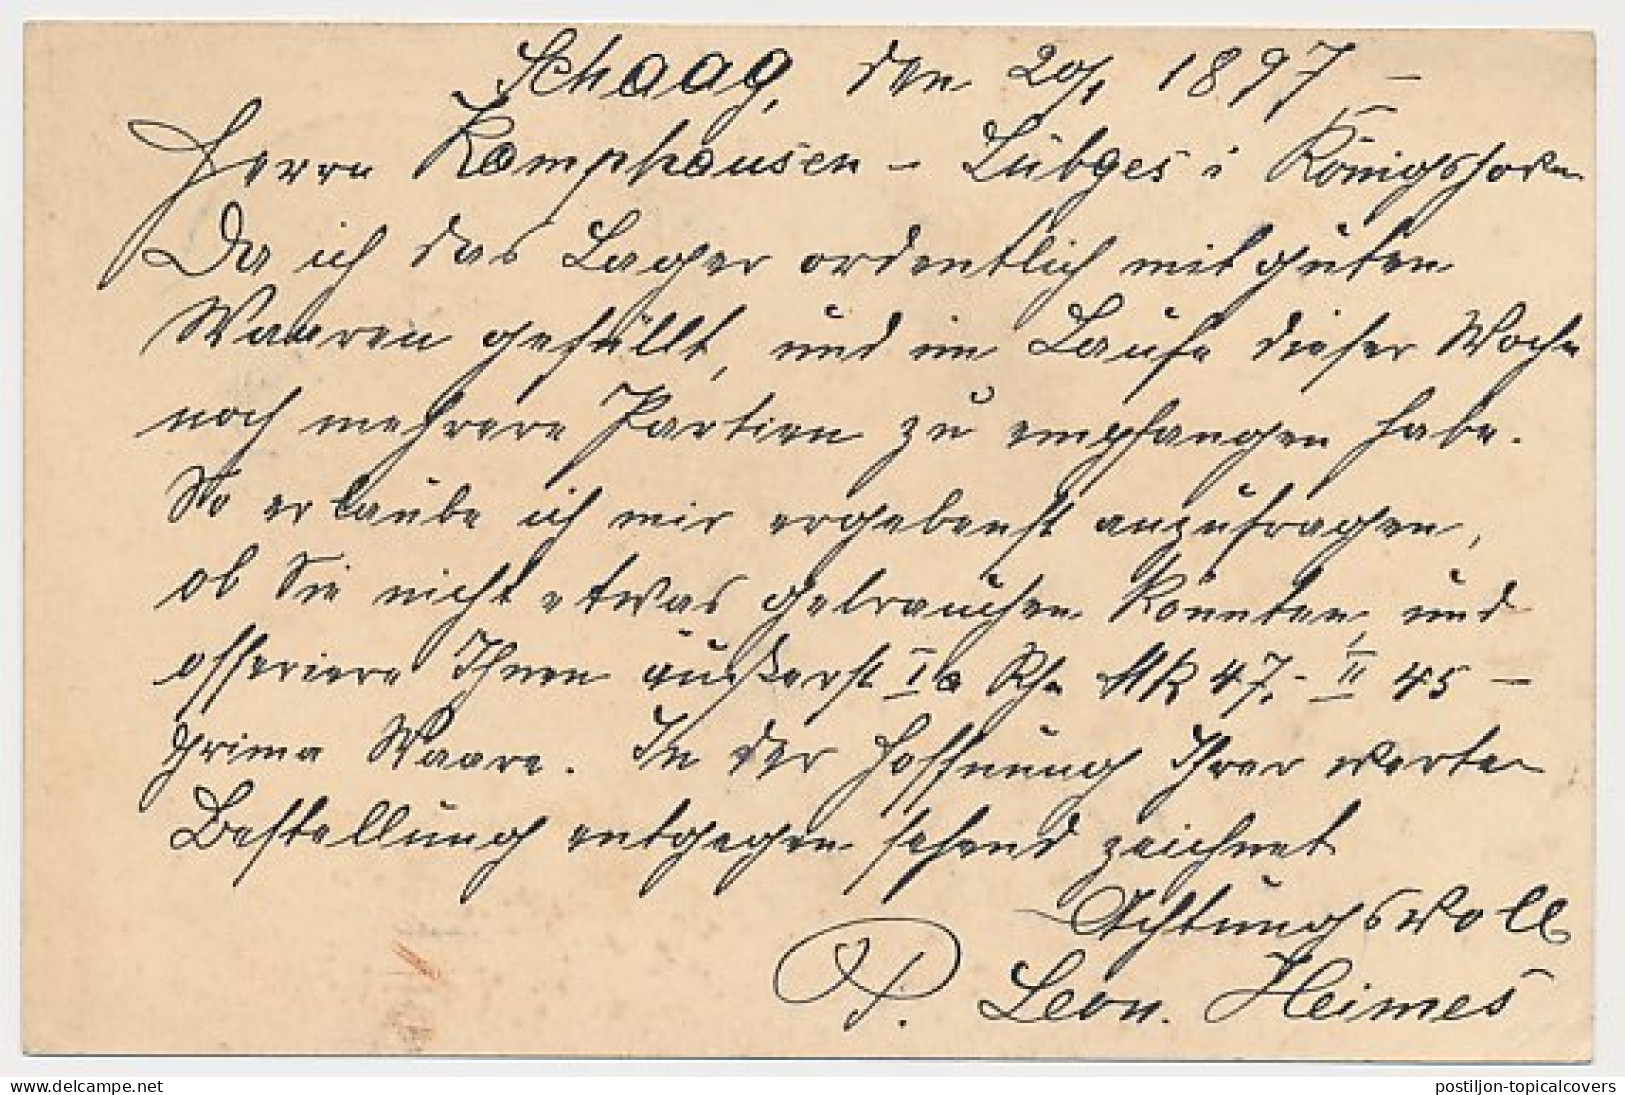 Schaag, den 20/1 1897 –
Herrn Kamphausen – Lübges i Königshoven
Da ich das Lager ordentlich mit guten
Waaren gefüllt, und im Laufe dieser Woche
noch mehrere Partien zu empfangen habe.
So erlaube ich mir ergebenst anzufragen,
ob Sie nicht etwas gebrauchen könnten, und
offeriere Ihnen äußerst Ia Mk 47.– II 45 –
prima Waare. In der Hoffnung Ihrer werten
Bestellung entgegen sehend zeichnet
Achtungsvoll
P. Leon. Heimes
postiljon-topicalcovers